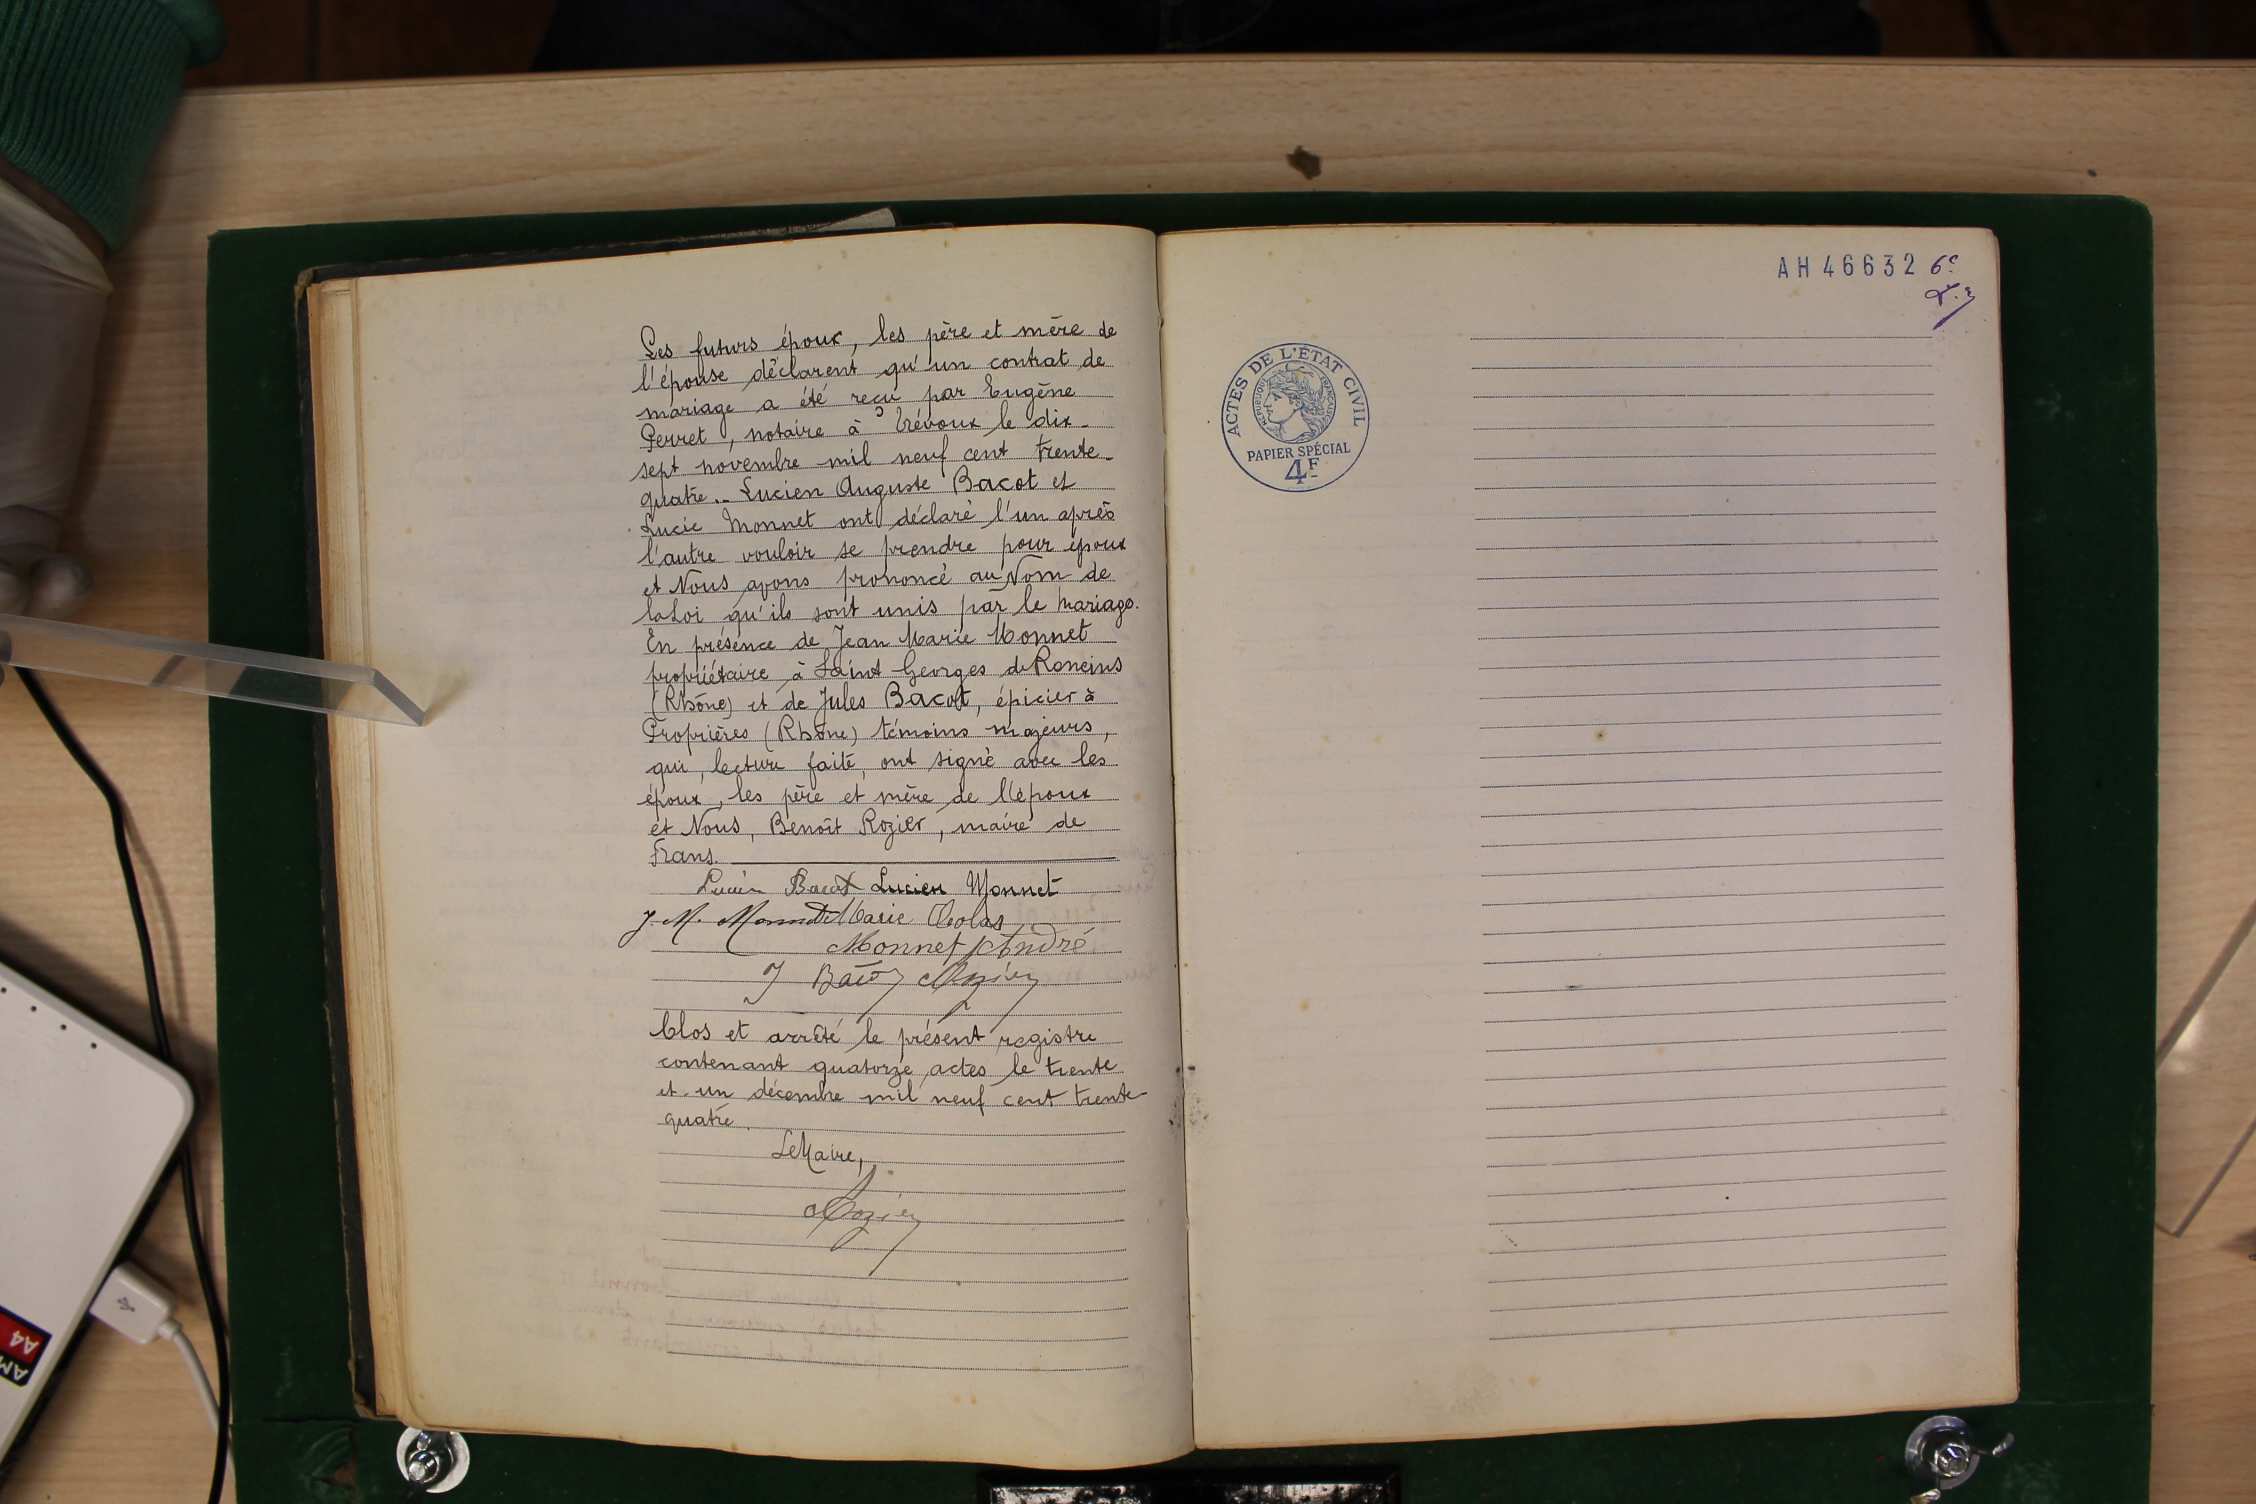 Les futurs époux, les père et mère de
l'épouse déclarent qu'un contrat de
mariage a été reçu par Eugène
Perret, notaire à Trévoux le dix-
sept novembre mil neuf cent trente-
quatre.- Lucien Auguste Bacot et
Lucie Monnet ont déclaré l'un après
l'autre vouloir se prendre pour époux
et Nous avons prononcé au Nom de
la Loi qu'ils sont unis par le mariage.
En présence de Jean Marie Monnet
propriétaire à Saint Georges de Roneins
(Rhône) et de Jules Bacot, épicier à
Propières (Rhône) témoins majeurs,
qui, lecture faite, ont signé avec les
époux, les père et mère de l'époux
et Nous, Benoît Rozier, maire de
Frans.
Lucien Bacot Lucien Monnet
J. M. Monnet Marie
Monnet André
J Bacot Rozier
Clos et arrêté le présent registre
contenant quatorze actes le trente
et un décembre mil neuf cent trente-
quatre.
Le Maire,
Rozier
AH 46632 6e
ACTES DE L'ÉTAT CIVIL
RÉPUBLIQUE FRANÇAISE
PAPIER SPÉCIAL
4F
A4
AM